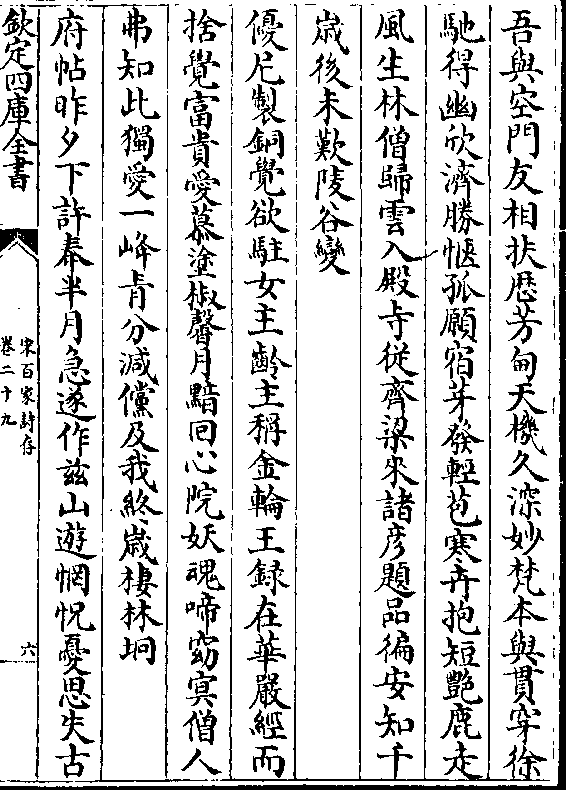 吾與空門友相扶歴芳甸天機久深妙梵本與貫穿徐
馳得幽欣濟勝愜孤願宿芽發輕苞寒卉抱短艶鹿走
風生林僧歸雲入殿寺從齊梁來諸彦題品徧安知千
嵗後未歎陵谷變
優尼製銅覺欲駐女主齡主稱金輪王録在華嚴經而
捨覺富貴愛慕塗椒馨月黯回心院妖魂啼窈冥僧人
弗知此獨愛一峰青分減儻及我終嵗棲林坰
府帖昨夕下許奉半月急遂作兹山遊惘怳憂思失古
欽定四庫全書
宋百家詩存
卷二十九
六